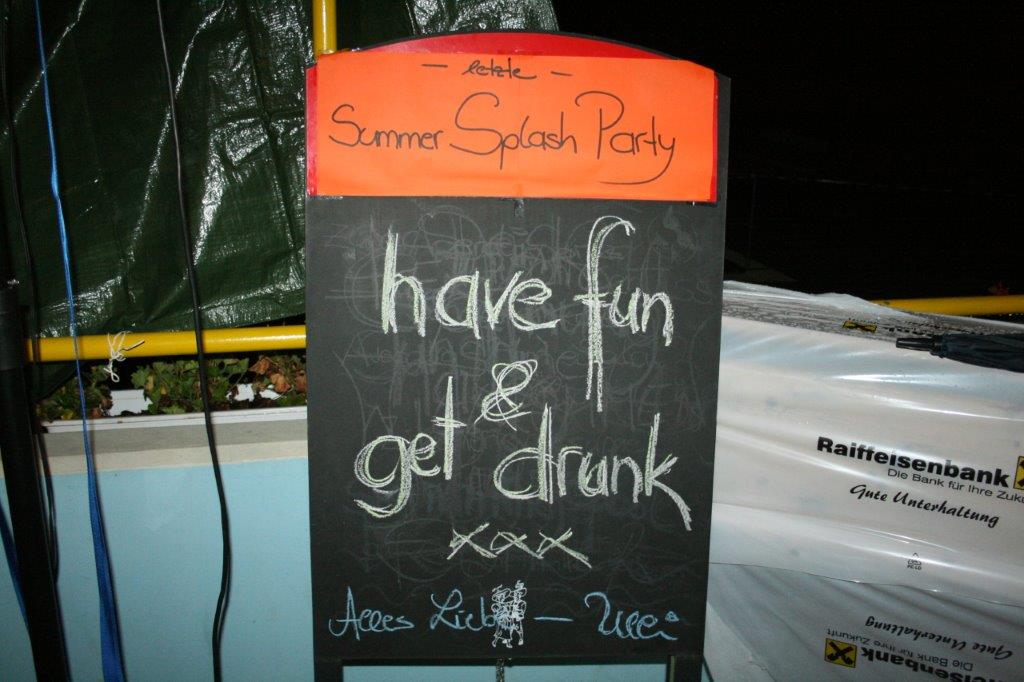 - letzte -
Summer Splash Party
have fun
&
get drunk
xxx
Alles Liebe - Ulli
Raiffeisenbank
Die Bank für Ihre Zuku
Gute Unterhaltung
Gute Unterhaltung
Die Bank für Ihre Zukunft
eisenbank